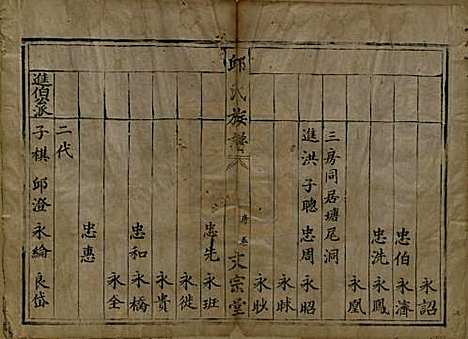 永詔
忠伯 永濟
忠洗 永鳳
永凰
三房同居塘尾洞
進洪 子聰 忠周 永昭
永眛
永眇
邱氏族譜 大宗堂
忠先 永班
永從
永貴
忠和 永橋
永全
忠惠
二代
進伯公派 子棋 邱澄 永綸 良岱